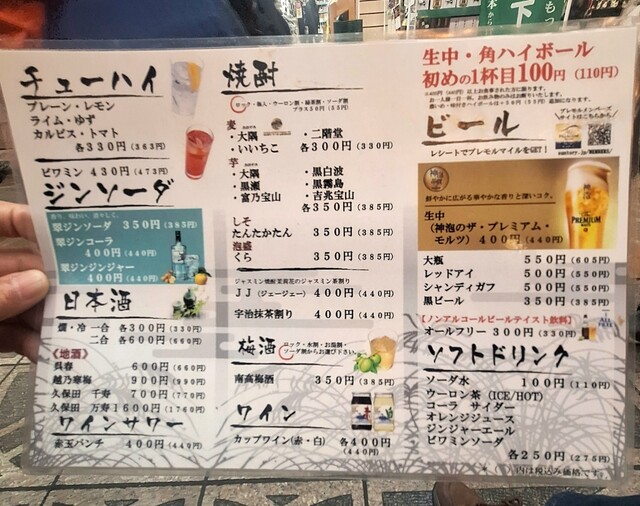 チューハイ
プレーン・レモン
ライム・ゆず
カルピス・トマト
各330円(363円)
ビワミン 430円(473円)
ジンソーダ
翠ジンソーダ 350円(385円)
翠ジンコーラ
400円(440円)
翠ジンジンジャー
400円(440円)
日本酒
燗・冷 一合 各300円(330円)
二合 各600円(660円)
《地酒》
呉春 600円(660円)
越乃寒梅 900円(990円)
久保田 千寿 700円(770円)
久保田 万寿 1600円(1760円)
ワインサワー
赤玉パンチ 400円(440円)
焼酎
ロック・梅入・ウーロン割・緑茶割・ソーダ割
プラス30円(33円)
麦
・大隅 ・二階堂
・いいちこ 各300円(330円)
芋
・大隅 ・黒白波
・黒瀬 ・黒霧島
・富乃宝山 ・吉兆宝山
各350円(385円)
しそ
たんたかたん 350円(385円)
泡盛
くら 350円(385円)
ジャスミン焼酎茉莉花のジャスミン茶割り
JJ(ジェージェー) 400円(440円)
宇治抹茶割り 400円(440円)
梅酒
ロック・水割・お湯割・
ソーダ割からお選び下さい。
南高梅酒 350円(385円)
ワイン
カップワイン(赤・白) 各400円
(440円)
生中・角ハイボール
初めの1杯目100円(110円)
ビール
プレモルメンバーズ
サイトはこちらから
レシートでプレモルマイルをGET!
suntory.jp/MEMBERS/
鮮やかに広がる華やかな香りと深いコク。
生中
(神泡のザ・プレミアム・
モルツ) 400円(440円)
PREMIUM
大瓶 550円(605円)
レッドアイ 500円(550円)
シャンディガフ 500円(550円)
黒ビール 350円(385円)
【ノンアルコールビールテイスト飲料】
オールフリー 300円(330円)
ALL FREE
ソフトドリンク
ソーダ水 100円(110円)
ウーロン茶(ICE/HOT)
コーラ サイダー
オレンジジュース
ジンジャーエール
ビワミンソーダ
各250円(275円)
( )内は税込み価格です。